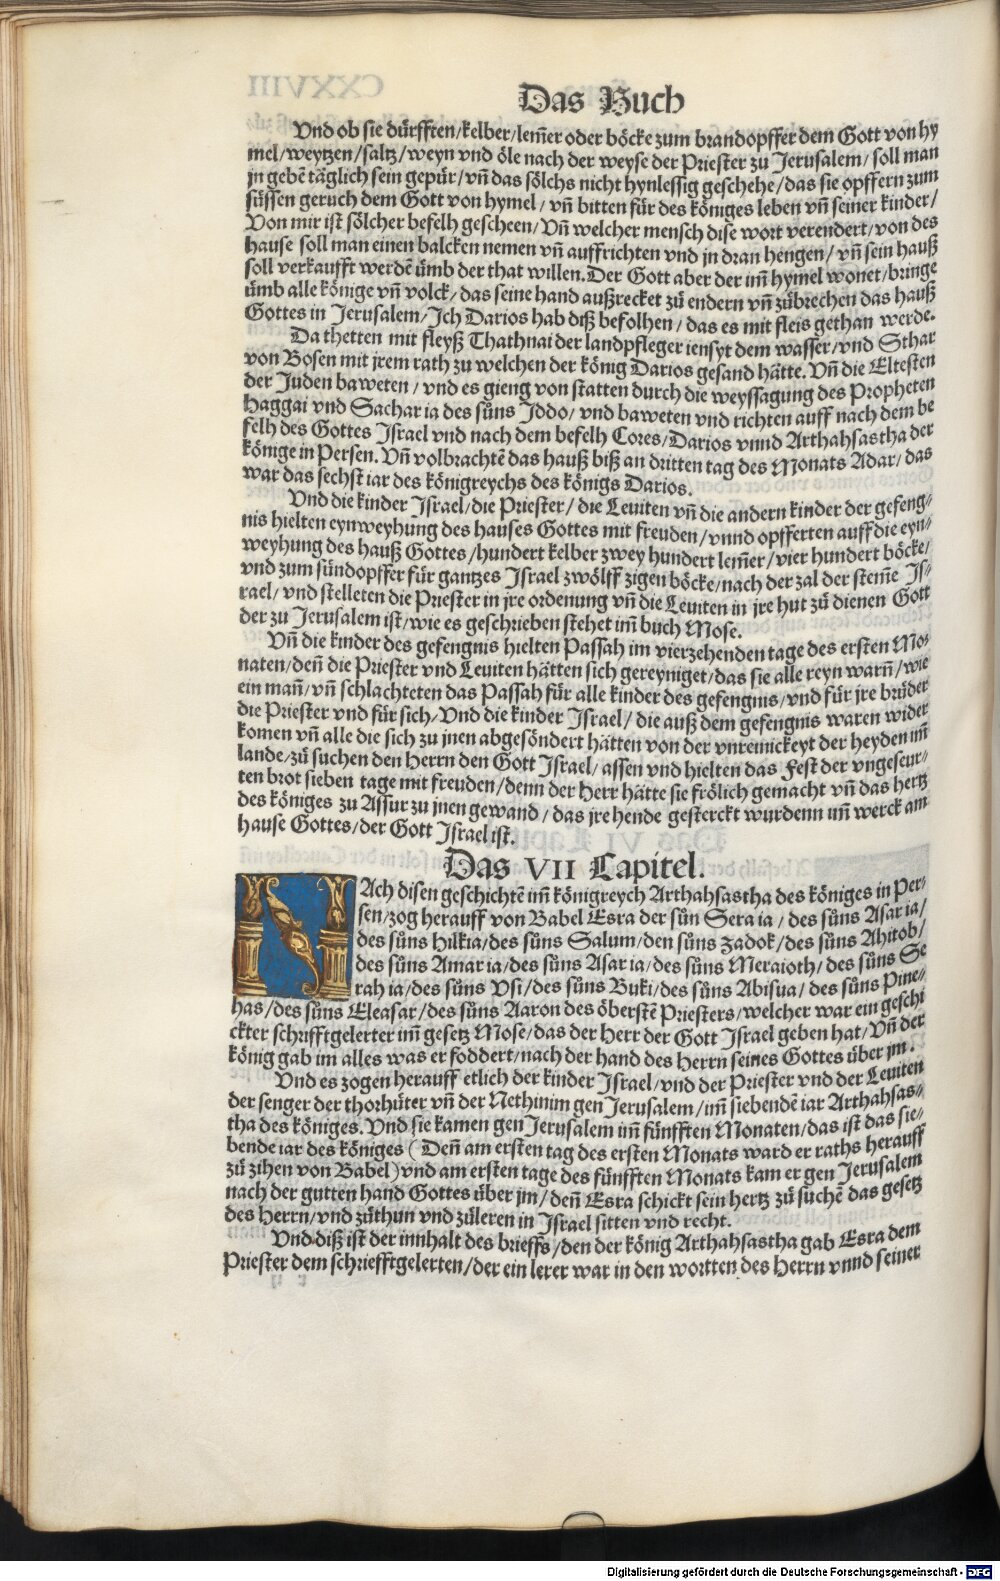 Das Buch
Vnd ob sie dürfften/kelber/lem̄er oder böcke zum brandopffer dem Gott von hy
mel/weytzen/saltz/weyn vnd öle nach der weyse der Priester zu Jerusalem/soll man
jn gebē täglich sein gepür/vn̄ das sölchs nicht hynlessig geschehe/das sie opffern zum
süssen geruch dem Gott von hymel/vn̄ bitten für des königes leben vn̄ seiner kinder/
Von mir ist sölcher befelh gescheen/Vn̄ welcher mensch dise wort verendert/von des
hause soll man einen balcken nemen vn̄ auffrichten vnd jn dran hengen/vn̄ sein hauß
soll verkaufft werdē ümb der that willen. Der Gott aber der im̄ hymel wonet/bringe
ümb alle könige vn̄ volck/das seine hand außrecket zů endern vn̄ zůbrechen das hauß
Gottes in Jerusalem/Ich Darios hab diß befolhen/das es mit fleis gethan werde.
Da thetten mit fleyß Thathnai der landpfleger iensyt dem wasser/vnd Sthar
von Bosen mit jrem rath zu welchen der könig Darios gesand hätte. Vn̄ die Eltesten
der Juden baweten/vnd es gieng von statten durch die weyssagung des Propheten
Haggai vnd Sachar ia des sůns Iddo/vnd baweten vnd richten auff nach dem be
felh des Gottes Israel vnd nach dem befelh Cores/Darios vnnd Arthahsastha der
könige in Persen. Vn̄ volbrachtē das hauß biß an dritten tag des Monats Adar/das
war das sechst iar des königreychs des königs Darios.
Vnd die kinder Israel/die Priester/die Leuiten vn̄ die andern kinder der gefeng⸗
nis hielten eynweyhung des hauses Gottes mit freuden/vnnd opfferten auff die eyn⸗
weyhung des hauß Gottes/hundert kelber zwey hundert lem̄er/vier hundert böcke/
vnd zum sündopffer für gantzes Israel zwölff zigen böcke/nach der zal der stem̄e Is⸗
rael/vnd stelleten die Priester in jre ordenung vn̄ die Leuiten in jre hut zů dienen Gott
der zu Jerusalem ist/wie es geschrieben stehet im̄ buch Mose.
Vn̄ die kinder des gefengnis hielten Passah im vierzehenden tage des ersten Mo⸗
naten/den̄ die Priester vnd Leuiten hätten sich gereyniget/das sie alle reyn warn̄/wie
ein man̄/vn̄ schlachteten das Passah für alle kinder des gefengnis/vnd für jre brüder
die Priester vnd für sich/Vnd die kinder Israel/die auß dem gefengnis waren wider
komen vn̄ alle die sich zu jnen abgesöndert hätten von der vnreinickeyt der heyden im̄
lande/zů suchen den Herrn den Gott Israel/assen vnd hielten das Fest der vngeseur⸗
ten brot sieben tage mit freuden/denn der Herr hätte sie frölich gemacht vn̄ das hertz
des königes zu Assur zu jnen gewand/das jre hende gesterckt wurdenn im̄ werck am
hause Gottes/der Gott Israel ist.
Das VII Capitel.
NAch disen geschichtē im̄ königreych Arthahsastha des königes in Per⸗
sen/zog herauff von Babel Esra der sůn Sera ia/des sůns Asar ia/
des sůns Hilkia/des sůns Salum/den sůns Zadok/des sůns Ahitob/
des sůns Amar ia/des sůns Asar ia/des sůns Meraioth/des sůns Se
rah ia/des sůns Vsi/des sůns Buki/des sůns Abisua/des sůns Pine⸗
has/des sůns Eleasar/des sůns Aaron des öberstē Priesters/welcher war ein geschi
ckter schrifftgelerter im̄ gesetz Mose/das der Herr der Gott Israel geben hat/Vn̄ der
könig gab im alles was er foddert/nach der hand des Herrn seines Gottes über jm.
Vnd es zogen herauff etlich der kinder Israel/vnd der Priester vnd der Leuiten
der senger der thorhüter vn̄ der Nethinim gen Jerusalem/im̄ siebendē iar Arthahsas⸗
tha des königes. Vnd sie kamen gen Jerusalem im̄ fünfften Monaten/das ist das sie⸗
bende iar des königes (Den̄ am ersten tag des ersten Monats ward er raths herauff
zů zihen von Babel) vnd am ersten tage des fünfften Monats kam er gen Jerusalem
nach der gutten hand Gottes über jm/den̄ Esra schickt sein hertz zů suchē das gesetz
des Herrn/vnd zůthun vnd zůleren in Israel sitten vnd recht.
Vnd diß ist der innhalt des brieffs/den der könig Arthahsastha gab Esra dem
Priester dem schriefftgelerten/der ein lerer war in den wortten des Herrn vnnd seiner
Digitalisierung gefördert durch die Deutsche Forschungsgemeinschaft - DFG